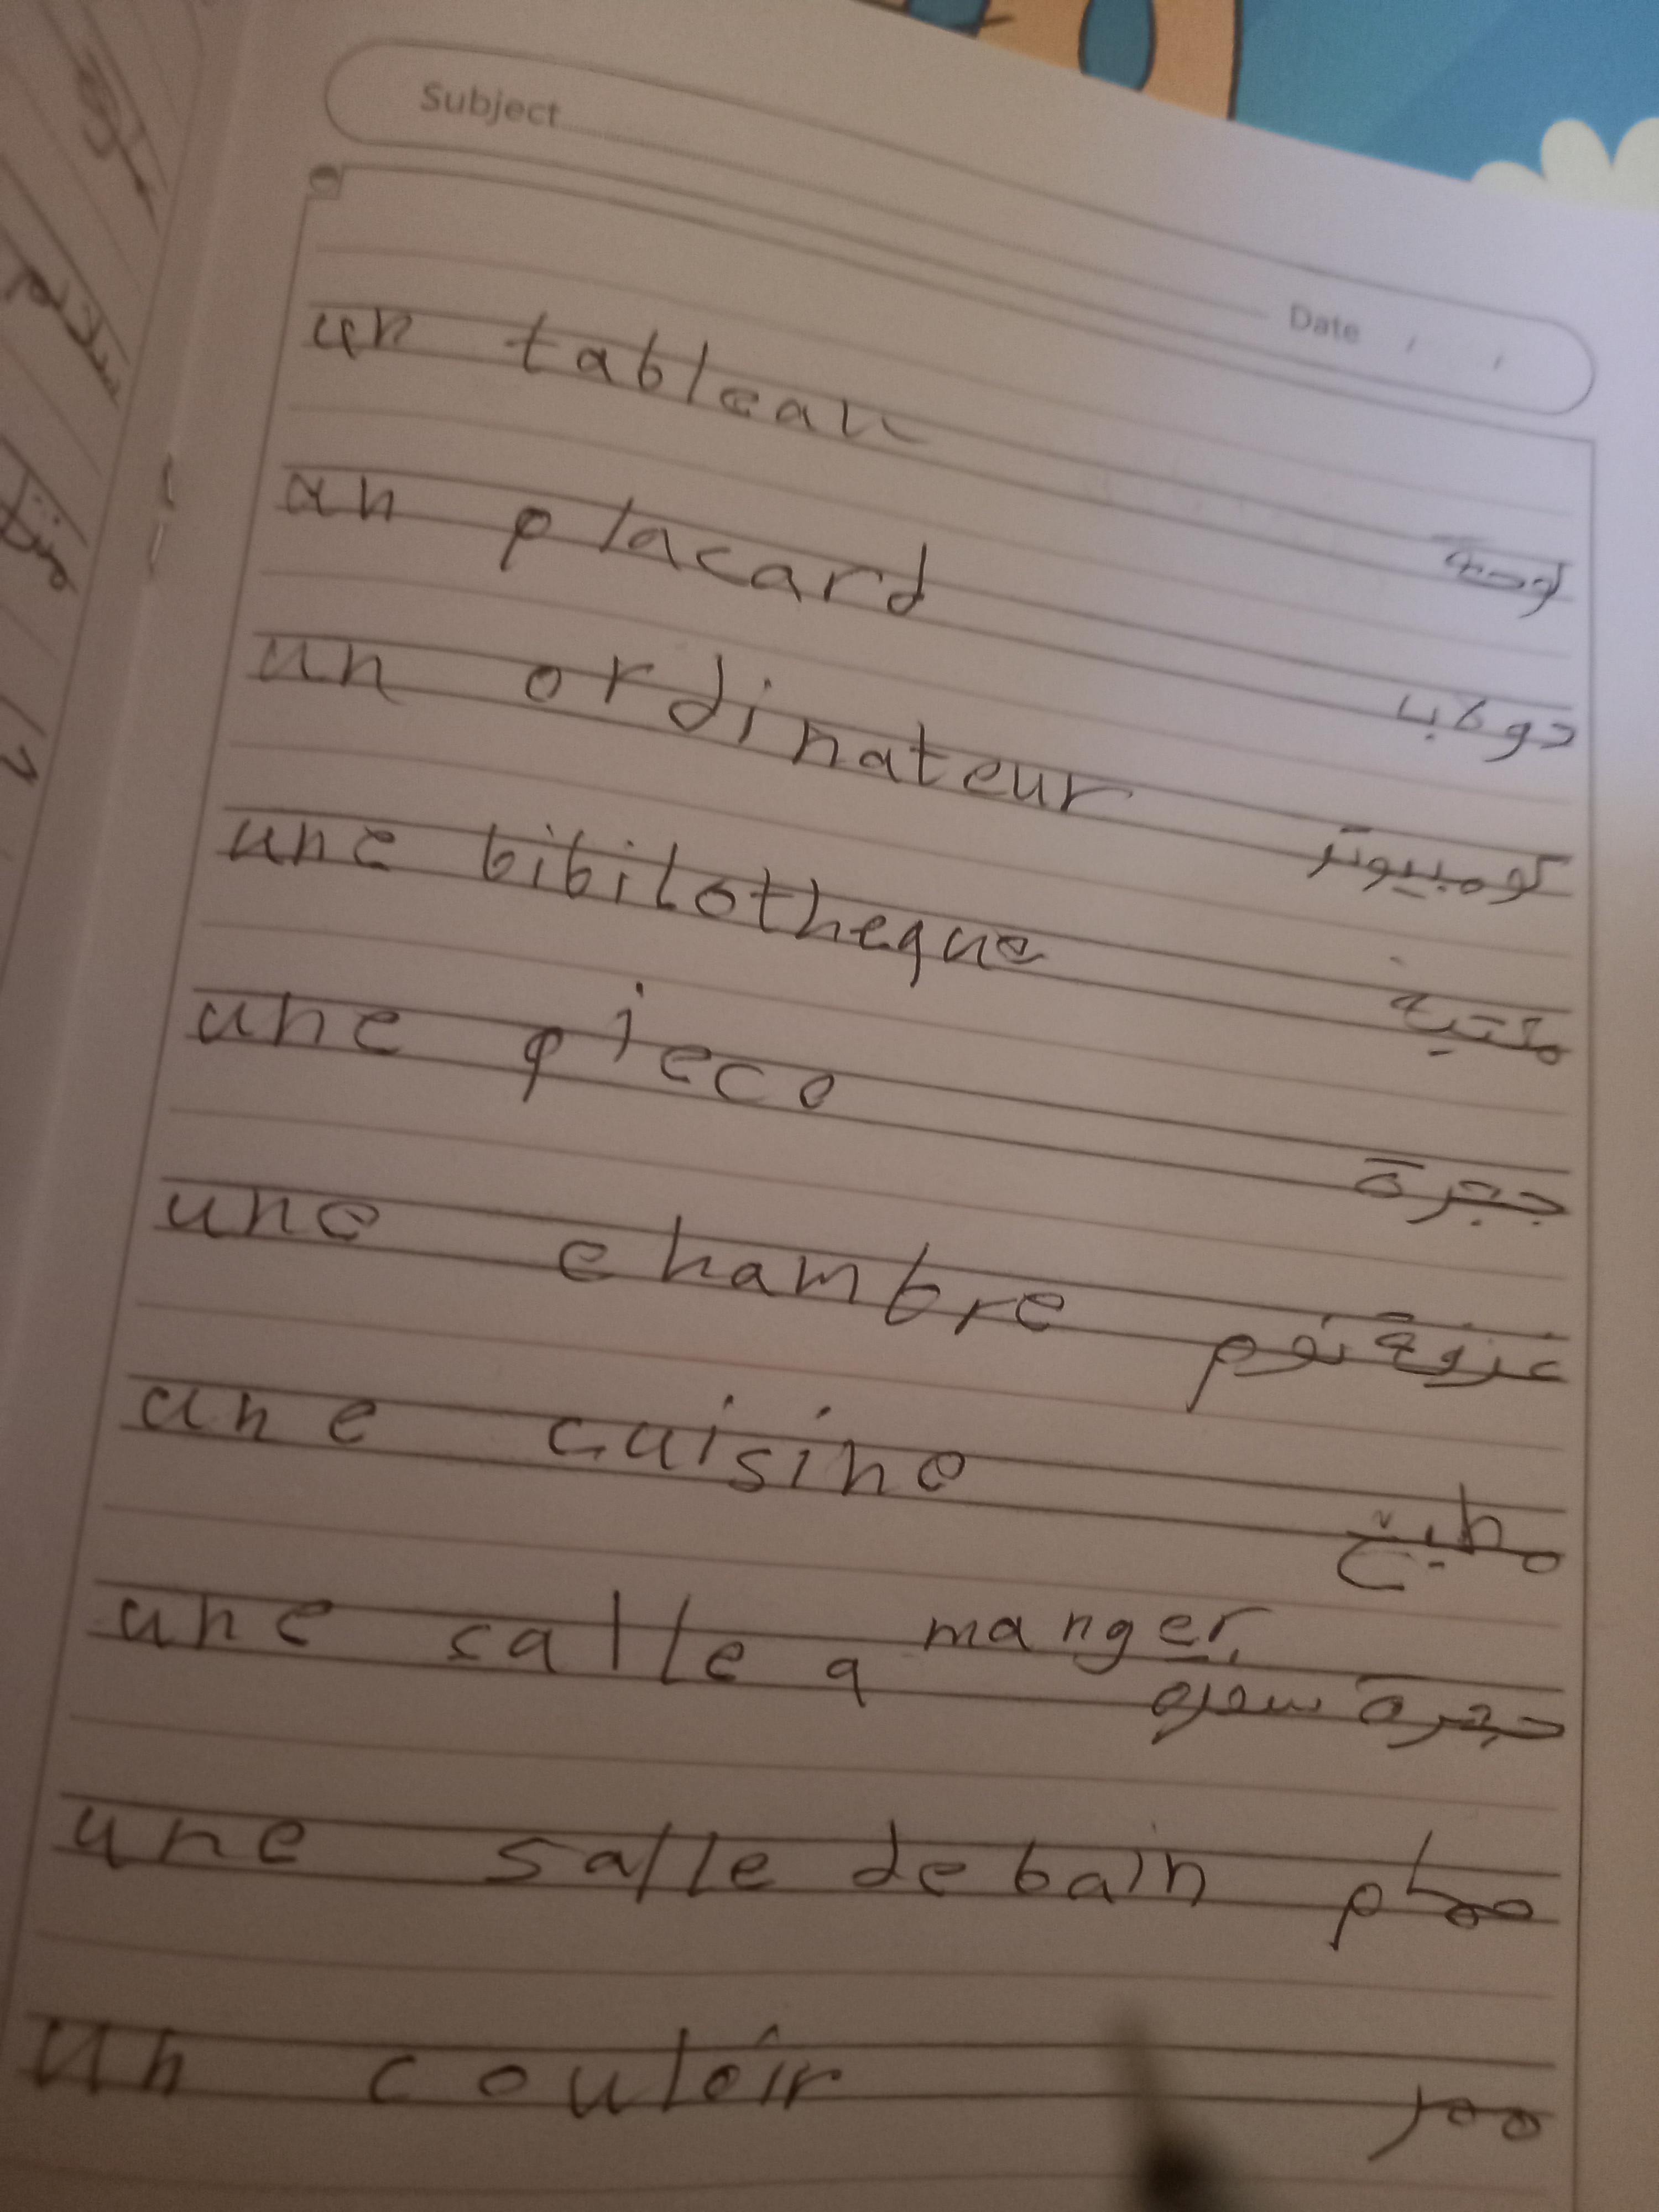 Subject
Date / /
un tableau لوحة
un placard دولاب
un ordinateur كومبيوتر
une bibilotheque مكتبة
une piece حجرة
une chambre غرفة نوم
une cuisine مطبخ
une salle a manger حجرة سفره
une salle de bain حمام
un couloir ممر